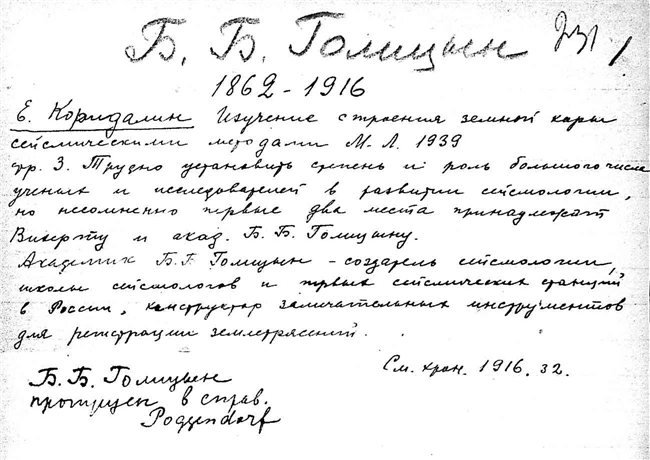 Б. Б. Голицын 231 1
1862 - 1916
Е. Коридалин Изучение строения земной коры
сейсмическими методами М-Л. 1939
стр. 3. Трудно установить степень и роль большого числа
ученых и исследователей в развитии сейсмологии,
но несомненно первые два места принадлежат
Вихерту и акад. Б. Б. Голицыну.
Академик Б.Б. Голицын - создатель сейсмологии,
школы сейсмологов и первых сейсмических станций
в России, конструктор замечательных инструментов
для регистрации землетрясений.
См. хран. 1916. 32.
Б. Б. Голицын
пропущен в справ.
Poggendorf